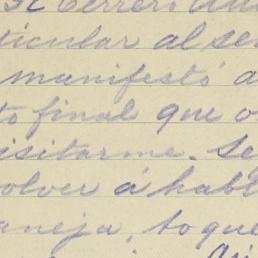 ticular al se
manifestó a
to final que o
isitarme. Se
olver á habl
aneja, to que